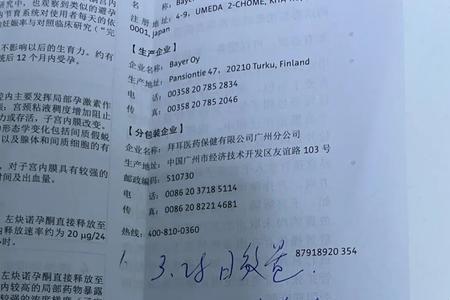 究中，也观察到类似的避孕
内节育系统对使用者每天的依
妊娠率与对照临床研究（“完
不影响以后的生育力。约有
统后 12 个月内受孕。
腔内主要发挥局部孕激素作
制；宫颈粘液稠度增加阻止
力或存活，子宫内膜改变。
的形态学变化包括间质假蜕
以及腺体和间质细胞的有
，对子宫内膜具有较强的
时间及出血量。
左炔诺孕酮直接释放至
内释放速率约为 20 μg/24
小时。
左炔诺孕酮直接释放至
内较高的局部药物暴露
企业名称：Bayer
注册地址：4-9, UMEDA 2-CHOME, KITA
0001, japan
【生产企业】
企业名称：Bayer Oy
生产地址：Pansiontie 47，20210 Turku, Finland
电 话：00358 20 785 2834
传 真：00358 20 785 2046
【分包装企业】
企业名称：拜耳医药保健有限公司广州分公司
生产地址：中国广州市经济技术开发区友谊路 103 号
邮政编码：510730
电 话：0086 20 3718 5114
传 真：0086 20 8221 4681
热线：400-810-0360
87918920 354